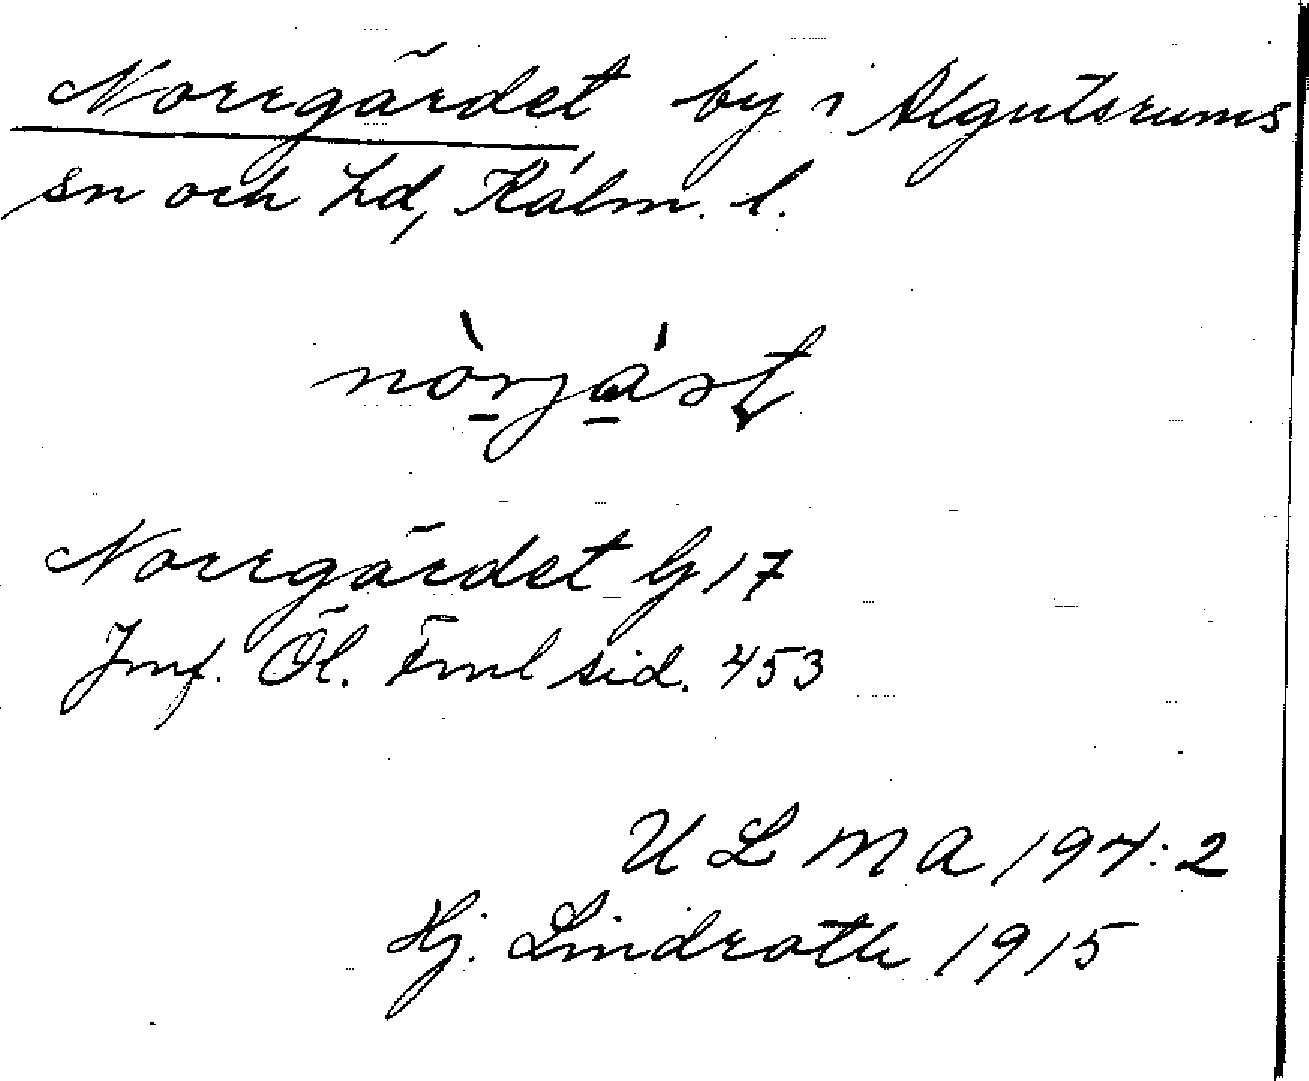 Norrgärdet by i Algutsrums
sn och hd, Kalm. l.
Norrgärdet G 17
Jmf. Öl. Fml sid. 453
ULMA 194:2
Hj. Lindroth 1915